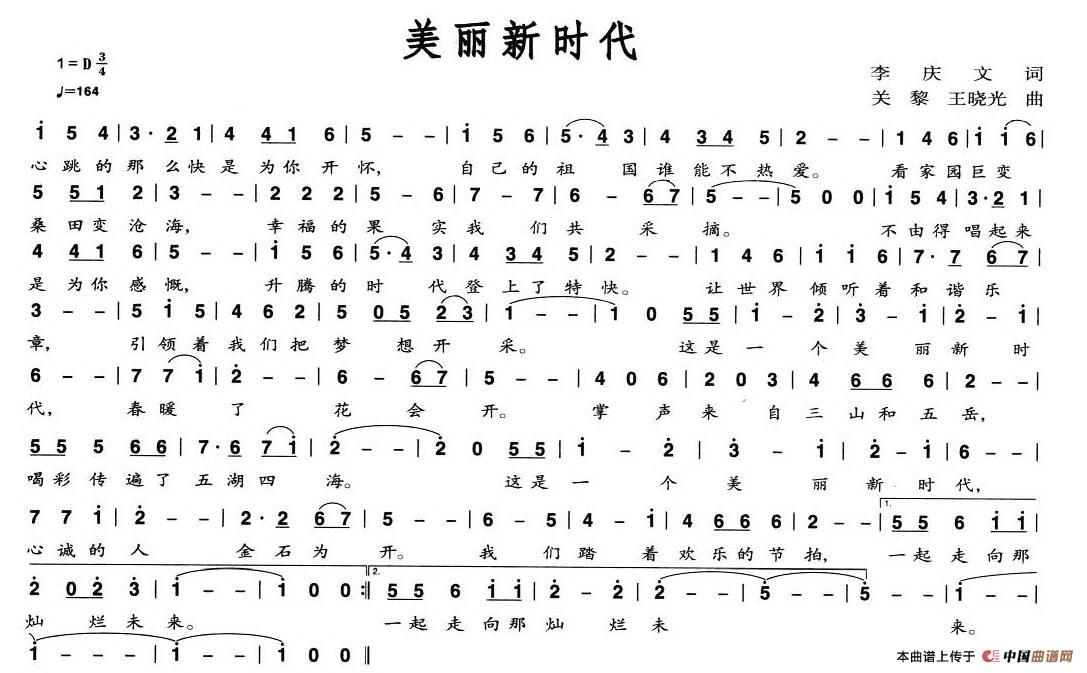 美丽新时代
1=D 3/4
♩=164
李庆文 词
关黎 王晓光 曲
i 5 4 | 3· 2 1 | 4 4 1 6 | 5 - - | i 5 6 | 5· 4 3 | 4 3 4 5 | 2 - - | 1 4 6 | i i 6 |
心跳的那么快是为你开怀,自己的祖国谁能不热爱。看家园巨变
5 5 1 2 | 3 - - | 2 2 2 | 5 - 6 | 7 - 7 | 6 - 6 7 | 5 - - | 5 0 0 | i 5 4 | 3· 2 1 |
桑田变沧海,幸福的果实我们共采摘。不由得唱起来
4 4 1 6 | 5 - - | i 5 6 | 5· 4 3 | 4 3 4 5 | 2 - - | 1 4 6 | i i 6 | 7· 7 6 7 |
是为你感慨,升腾的时代登上了特快。让世界倾听着和谐乐
3 - - | 5 i 5 | 4 6 2 | 5 0 5 2 3 | 1 - - | 1 0 5 5 | i - 2 | 3 - i | 2 - i |
章,引领着我们把梦想开采。这是一个美丽新时
6 - - | 7 7 i | 2 - - | 6 - 6 7 | 5 - - | 4 0 6 | 2 0 3 | 4 6 6 6 | 2 - - |
代,春暖了花会开。掌声来自三山和五岳,
5 5 5 6 6 | 7· 6 7 i | 2 - - | 2 0 5 5 | i - 2 | 3 - i | 2 - i | 6 - - |
喝彩传遍了五湖四海。这是一个美丽新时代,
7 7 i | 2 - - | 2· 2 6 7 | 5 - - | 6 - 5 | 4 - i | 4 6 6 6 | 2 - - | 1. 5 5 6 i i |
心诚的人金石为开。我们踏着欢乐的节拍,一起走向那
2 0 2 3 | i - - | i 0 0 :‖ 2. 5 5 6 i i | 2 - 2 | 2 - - | 2 - - | 5 - - | 5 - - | i - - |
灿烂未来。一起走向那灿烂未来。
i - - | i - - | i 0 0 ‖
本曲谱上传于 中国曲谱网